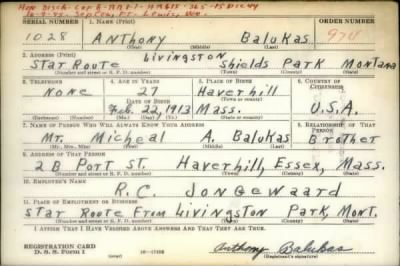 Hon Disch. Cpl
10-9-45 Sep Cen, Ft. Lewis, Wn.
SERIAL NUMBER 1. NAME (Print) ORDER NUMBER
1028 Anthony Balukas 974
(First) (Middle) (Last)
2. ADDRESS (Print)
Livingston
Star Route Shields Park Montana
(Number and street or R. F. D. number) (Town) (County) (State)
3. TELEPHONE 4. AGE IN YEARS 5. PLACE OF BIRTH 6. COUNTRY OF CITIZENSHIP
None 27 Haverhill
DATE OF BIRTH (Town or county)
Feb. 22, 1913 Mass. U.S.A.
(Mo.) (Day) (Yr.) (State or country)
7. NAME OF PERSON WHO WILL ALWAYS KNOW YOUR ADDRESS 8. RELATIONSHIP OF THAT PERSON
Mr. Micheal A. Balukas Brother
(Mr., Mrs., Miss) (First) (Middle) (Last)
9. ADDRESS OF THAT PERSON
2 B Port St. Haverhill, Essex, Mass.
(Number and street or R. F. D. number) (Town) (County) (State)
10. EMPLOYER'S NAME
R. C. Jongewaard
11. PLACE OF EMPLOYMENT OR BUSINESS
Star Route From Livingston Park, Mont.
(Number and street or R. F. D. number) (Town) (County) (State)
I AFFIRM THAT I HAVE VERIFIED ABOVE ANSWERS AND THAT THEY ARE TRUE.
REGISTRATION CARD
D. S. S. Form 1
Anthony Balukas
(Registrant's signature)